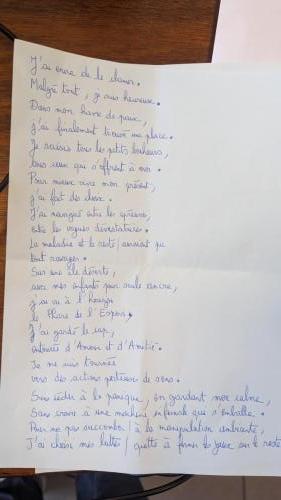 J'ai envie de le clamer.
Malgré tout, je suis heureuse.
Dans mon havre de paix,
j'ai finalement trouvé ma place.
Je saisis tous les petits bonheurs,
tous ceux qui s'offrent à moi.
Pour mieux vivre mon présent,
j'ai fait des choix.
J'ai navigué entre les épreuves,
entre les vagues dévastatrices.
La maladie et le reste / auraient pu
tout ravager.
Sur une île déserte,
avec mes enfants pour seule ancre,
j'ai vu à l'horizon
le Phare de l'Espoir.
J'ai gardé le cap,
entourée d'Amour et d'Amitié.
Je me suis tournée
vers des actions porteuses de sens.
Sans céder à la panique, en gardant mon calme,
Sans croire à une machine infernale qui s'emballe.
Pour ne pas succomber / à la manipulation ambiante,
J'ai choisi mes luttes / quitte à fermer les yeux sur le reste